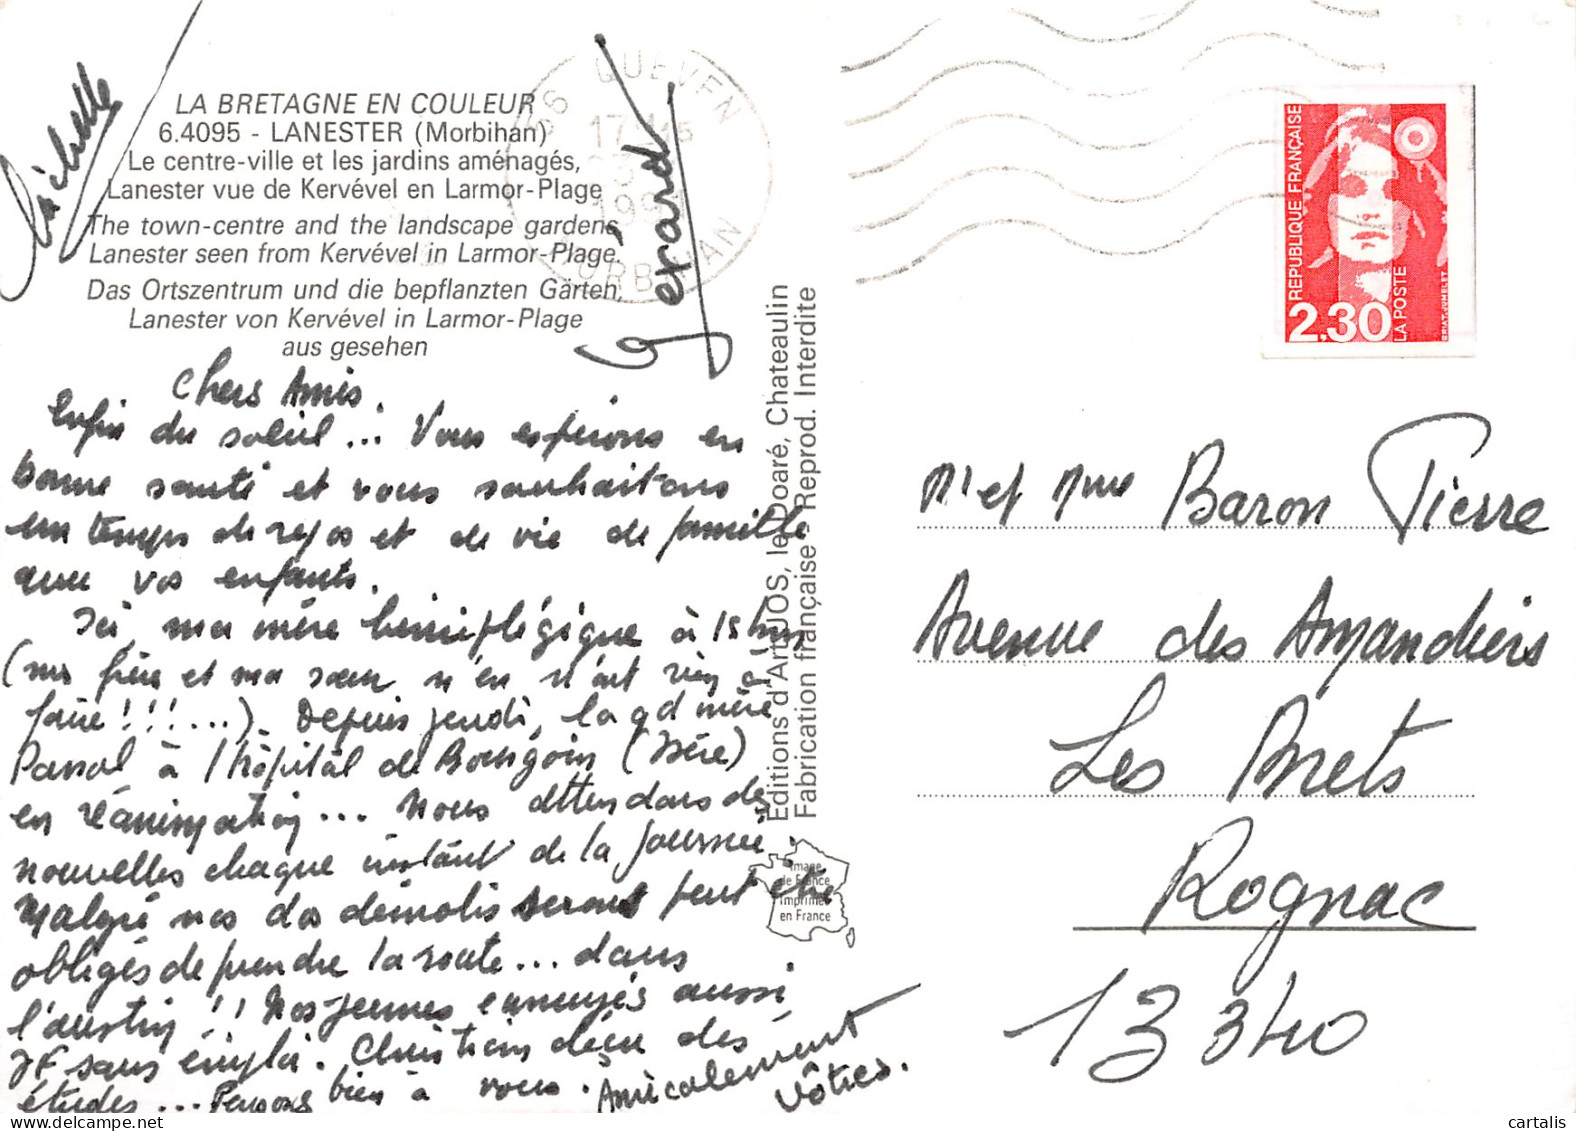 LA BRETAGNE EN COULEUR
6.4095 - LANESTER (Morbihan)
Le centre-ville et les jardins aménagés,
Lanester vue de Kervével en Larmor-Plage
The town-centre and the landscape gardens
Lanester seen from Kervével in Larmor-Plage.
Das Ortszentrum und die bepflanzten Gärten,
Lanester von Kervével in Larmor-Plage
aus gesehen
Michelle
Gérard
Chers Amis.
Enfin du soleil... Vous espérons en
bonne santé et vous souhaitons
un temps de repos et de vie de famille
avec vos enfants.
Ici, ma mère hémiplégique à 15 kms
(mon frère et ma sœur n'en n'ont rien à
faire!!!...). Depuis jeudi, la gd mère
Pascal à l'hôpital de Bourgoin (Isère)
en réanimation... Nous attendons des
nouvelles chaque instant de la journée.
Malgré nos dos démolis serons peut être
obligés de prendre la route... dans
l'austin!! Nos jeunes ennuyés aussi
JF sans emploi. Christian déçu des
études... Pensons bien à vous. Amicalement
vôtres.
Editions d'Art JOS, le Doaré, Chateaulin
Fabrication française - Reprod. Interdite
Image
de France
Imprimé
en France
56 QUEVEN
17 H 15
199
MORBIHAN
REPUBLIQUE FRANÇAISE
2,30
LA POSTE
BRIAT-JUMELET
Mr et Mme Baron Pierre
Avenue des Amandiers
Les Brets
Rognac
13340
cartalis